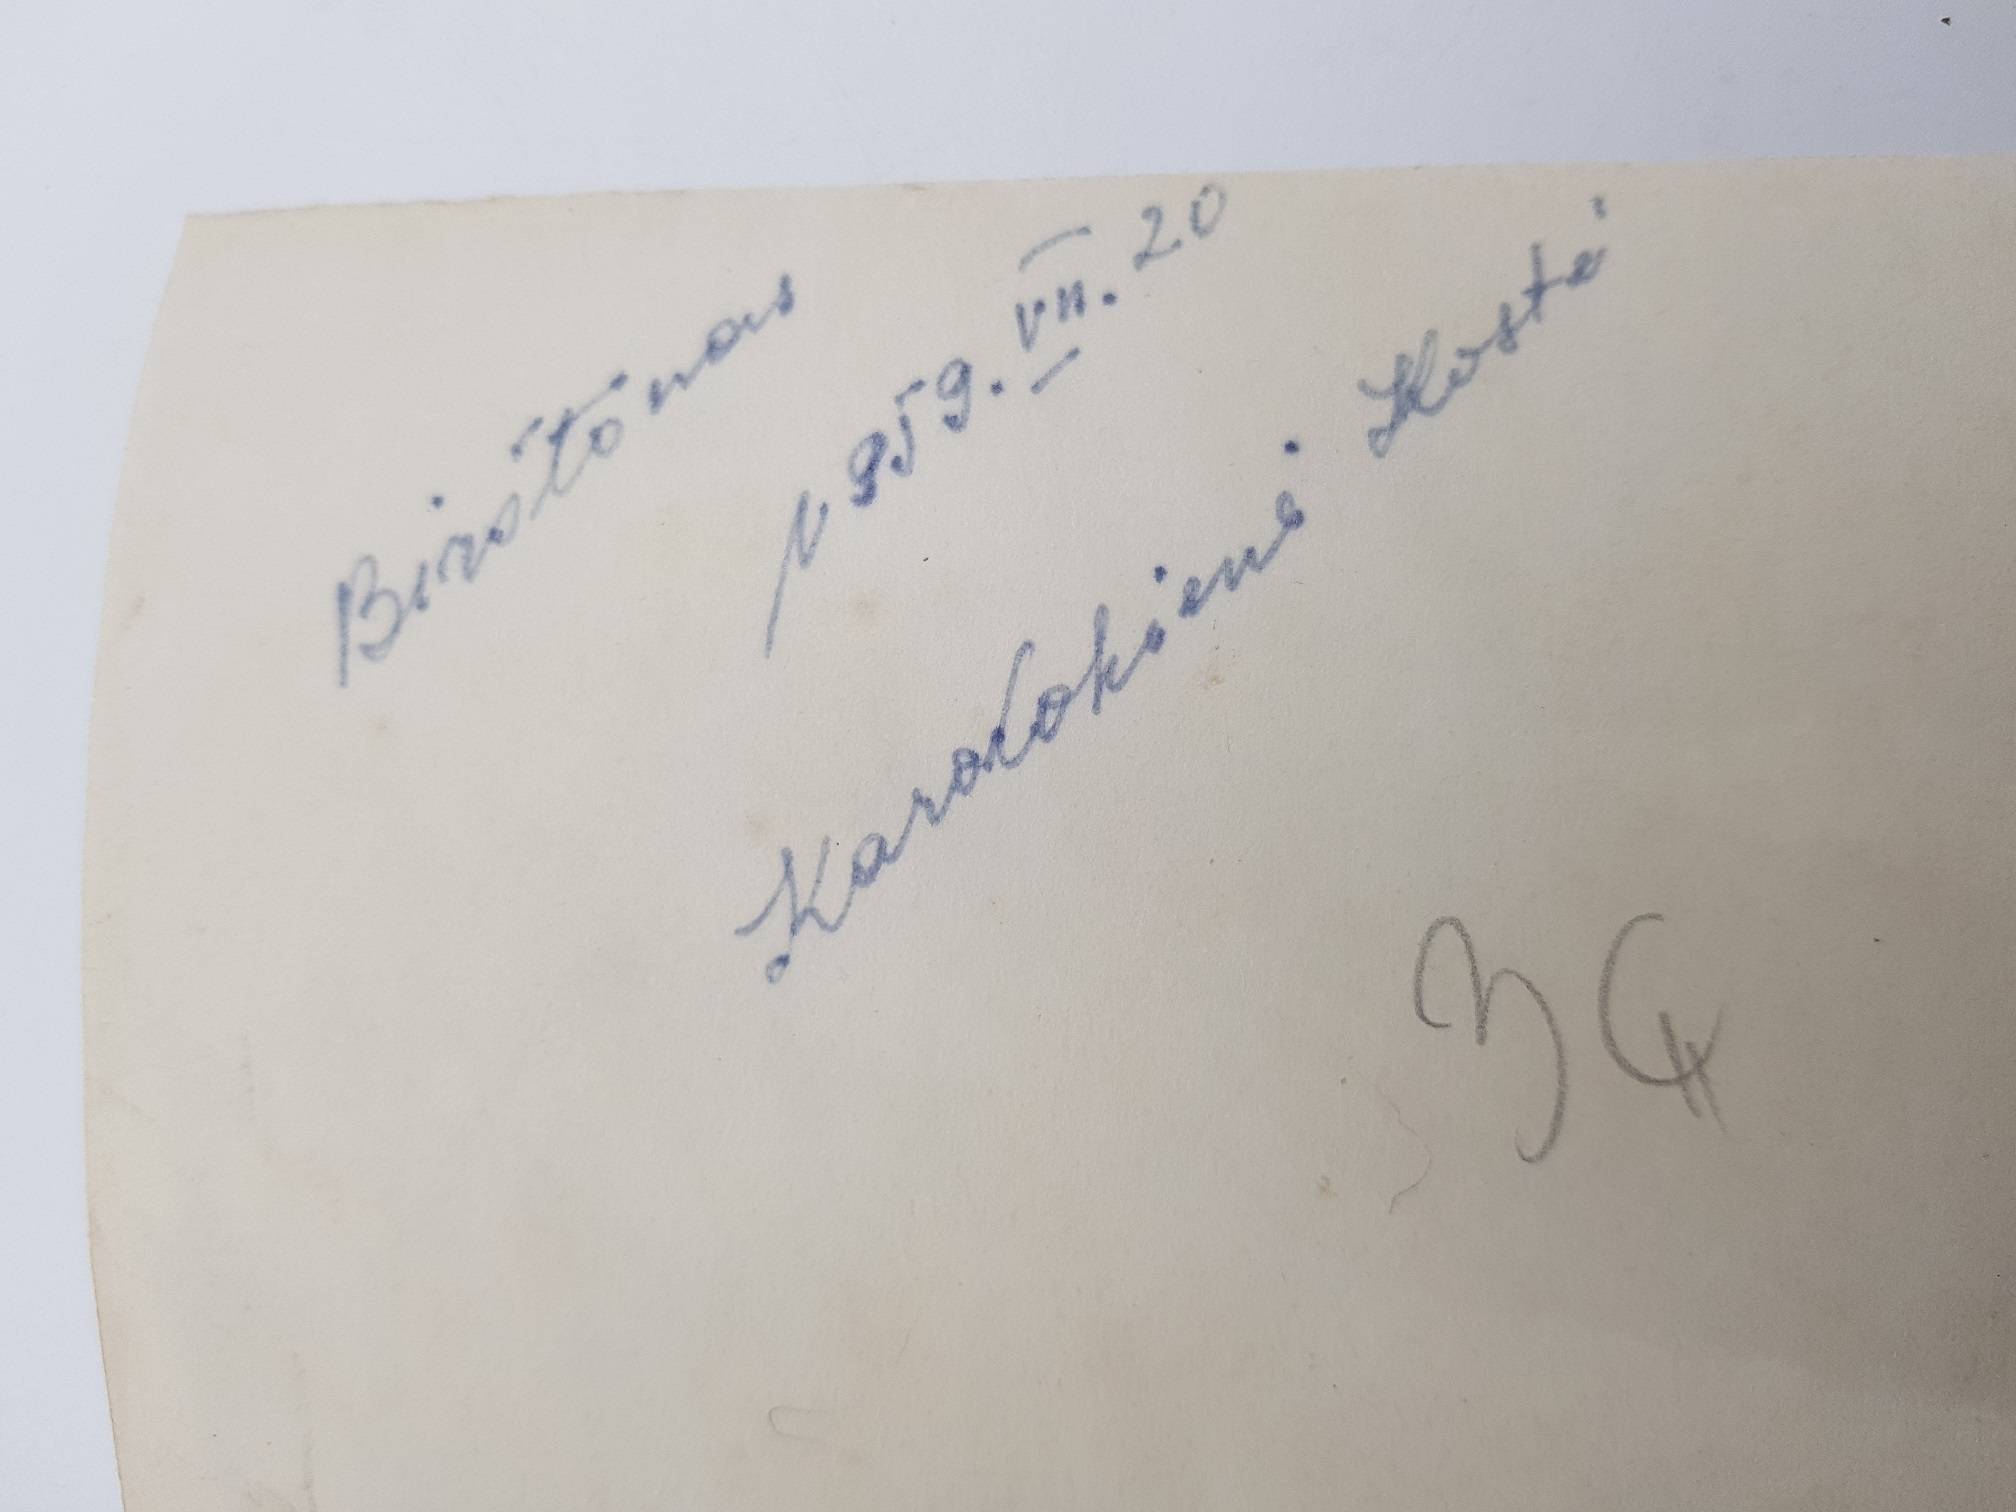 Birštonas
1959.VII.20
Karalokienė Kostė